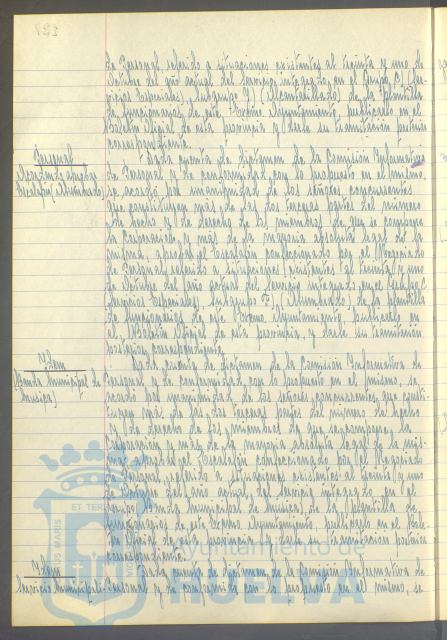 de Personal, referido a situaciones existentes al treinta y uno de
Octubre del año actual del Servicio integrado en el Grupo C) (Ser-
vicios Especiales), Subgrupo Y) (Alcantarillado) de la plantilla
de funcionarios de este Excmo. Ayuntamiento, publicarlo en el
Boletín Oficial de esta provincia y darle su tramitación posterior
correspondiente.
Personal
Acordando aprobar
Escalafón (Alumbrado)
Dada cuenta de dictamen de la Comisión Informativa
de Personal y de conformidad con lo propuesto en el mismo,
se acordó por unanimidad de los señores concurrentes
que constituyen más de las dos terceras partes del número
de hecho y de derecho de los miembros de que se compone
la Corporación, y más de la mayoría absoluta legal de la
misma, aprobar el Escalafón confeccionado por el Negociado
de Personal, referido a situaciones existentes al treinta y uno
de Octubre del año actual del Servicio integrado en el Grupo C)
(Servicios Especiales), Subgrupo F) (Alumbrado) de la plantilla
de funcionarios de este Excmo. Ayuntamiento, publicarlo en
el Boletín Oficial de esta provincia, y darle su tramitación
posterior correspondiente.
Item
(Banda Municipal de
Música)
Dada cuenta de dictamen de la Comisión Informativa de
Personal y de conformidad con lo propuesto en el mismo, se
acordó por unanimidad de los señores concurrentes, que consti-
tuyen más de las dos terceras partes del número de hecho
y de derecho de los miembros de que se compone la
Corporación y más de la mayoría absoluta legal de la mis-
ma, aprobar el Escalafón confeccionado por el Negociado
de Personal, referido a situaciones existentes al treinta y uno
de Octubre del año actual, del Servicio integrado en el
Grupo Banda Municipal de Música, de la plantilla de
funcionarios de este Excmo. Ayuntamiento, publicarlo en el Bole-
tín Oficial de esta provincia y darle su tramitación posterior
correspondiente.
Item
Servicios Municipali-
Dada cuenta de dictamen de la Comisión Informativa de
Personal y de conformidad con lo propuesto en el mismo, se
Ayuntamiento de
HUELVA